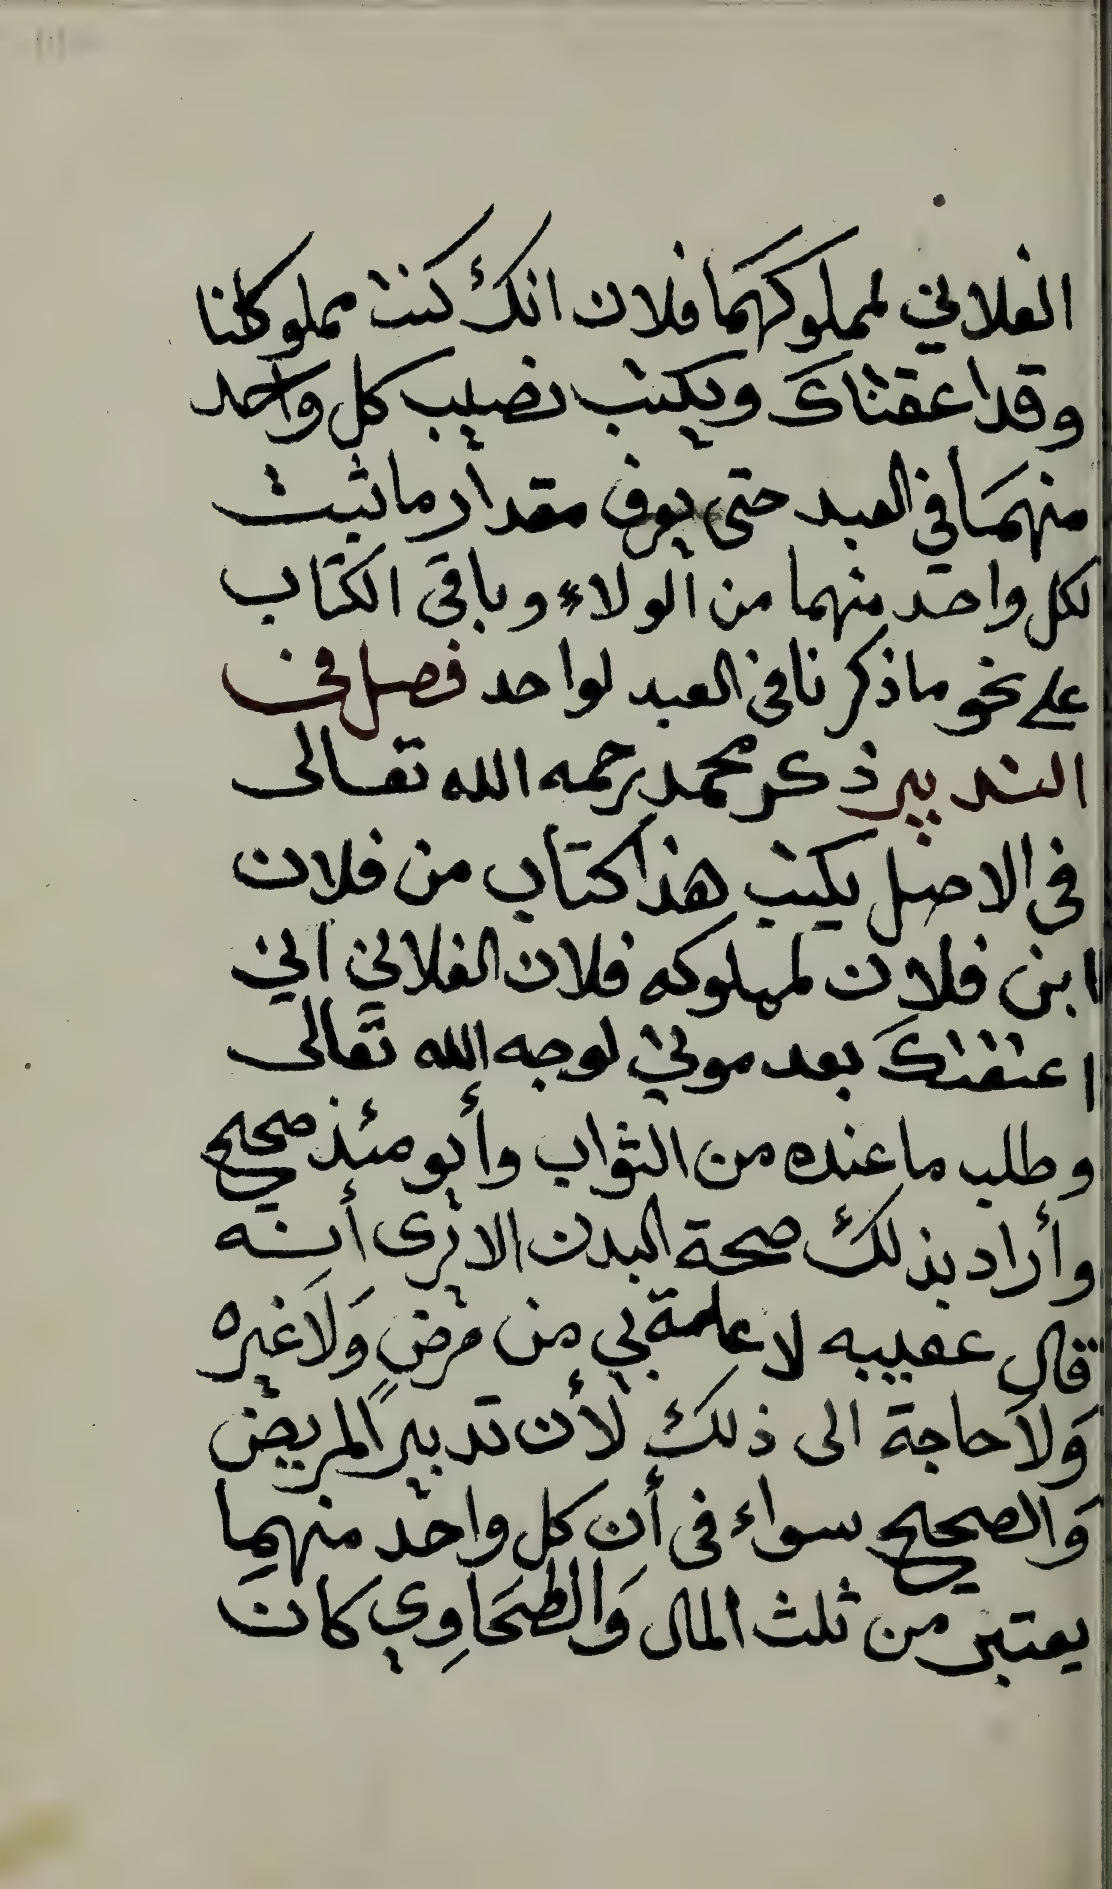 الفلاني لمملوكهما فلان انك كنت مملوكا لنا
وقد اعقناك ويكتب نصيب كل واحد
منهما في العبد حتى يعرف مقدار ما ثبت
لكل واحد منهما من الولاء وباقى الكتاب
على نحو ما ذكرنا في العبد لواحد فصل في
التدبير ذكر محمد رحمه الله تعالى
في الاصل يكتب هذا كتاب من فلان
ابن فلان لمملوكه فلان الفلاني اني
اعتقتك بعد موتي لوجه الله تعالى
وطلب ما عنده من الثواب وأيومئذ صحيح
وأراد بذلك صحة البدن الا ترى أنه
قال عقيبه لا علمة بي من مرض ولا غيره
ولا حاجة الى ذلك لأن تدبير المريض
والصحيح سواء في أن كل واحد منهما
يعتبر من ثلث المال والطحاوي كان